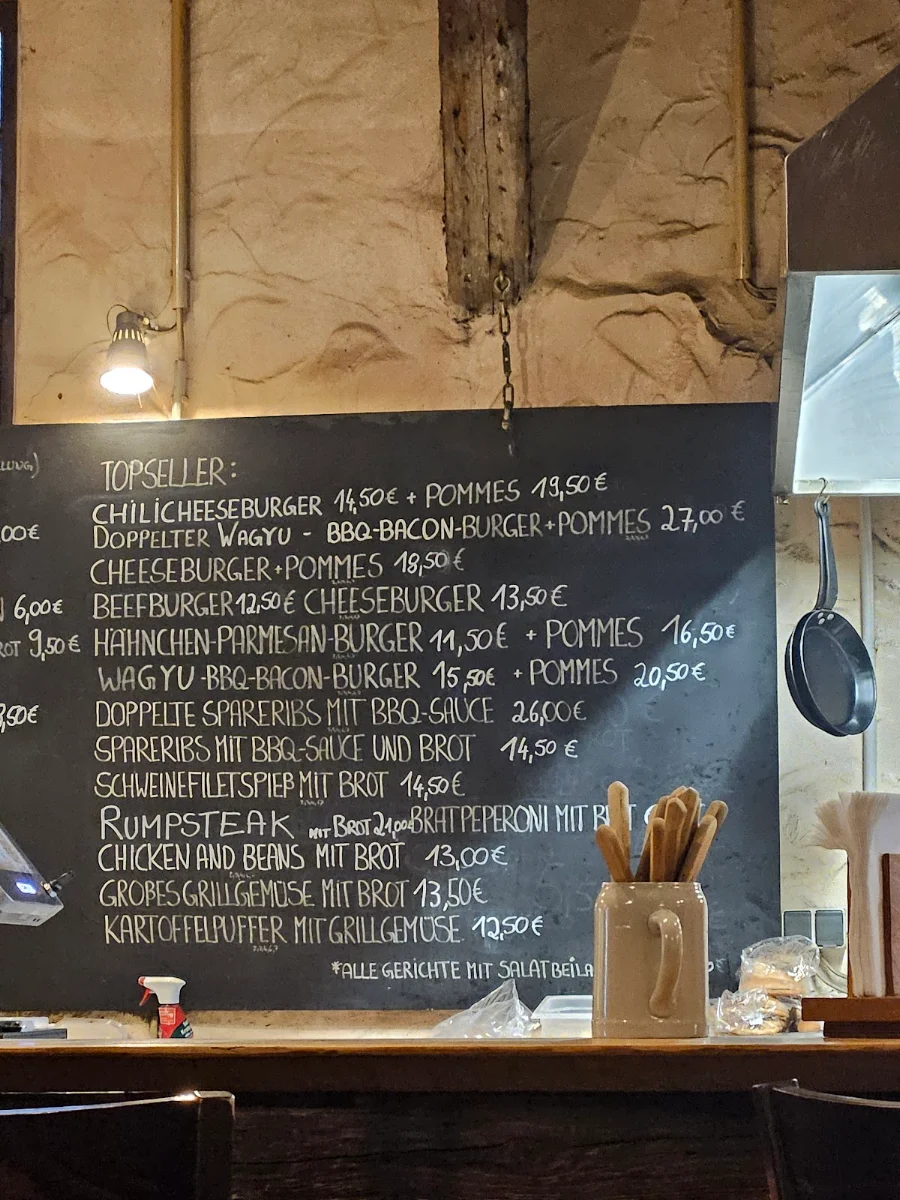 TOPSELLER:
CHILICHEESEBURGER 14,50€ + POMMES 19,50€
,00€
DOPPELTER WAGYU - BBQ-BACON-BURGER+POMMES 27,00 €
CHEESEBURGER+POMMES 18,50€
6,00€
BEEFBURGER 12,50€ CHEESEBURGER 13,50€
9,50€
HÄHNCHEN-PARMESAN-BURGER 11,50€ + POMMES 16,50€
WAGYU-BBQ-BACON-BURGER 15,50€ + POMMES 20,50€
,50€
DOPPELTE SPARERIBS MIT BBQ-SAUCE 26,00€
SPARERIBS MIT BBQ-SAUCE UND BROT 14,50 €
SCHWEINEFILETSPIEß MIT BROT 14,50€
RUMPSTEAK MIT BROT 21,00€ BRATPEPERONI MIT
CHICKEN AND BEANS MIT BROT 13,00€
GROBES GRILLGEMÜSE MIT BROT 13,50€
KARTOFFELPUFFER MIT GRILLGEMÜSE 12,50€
*ALLE GERICHTE MIT SALATBEILA